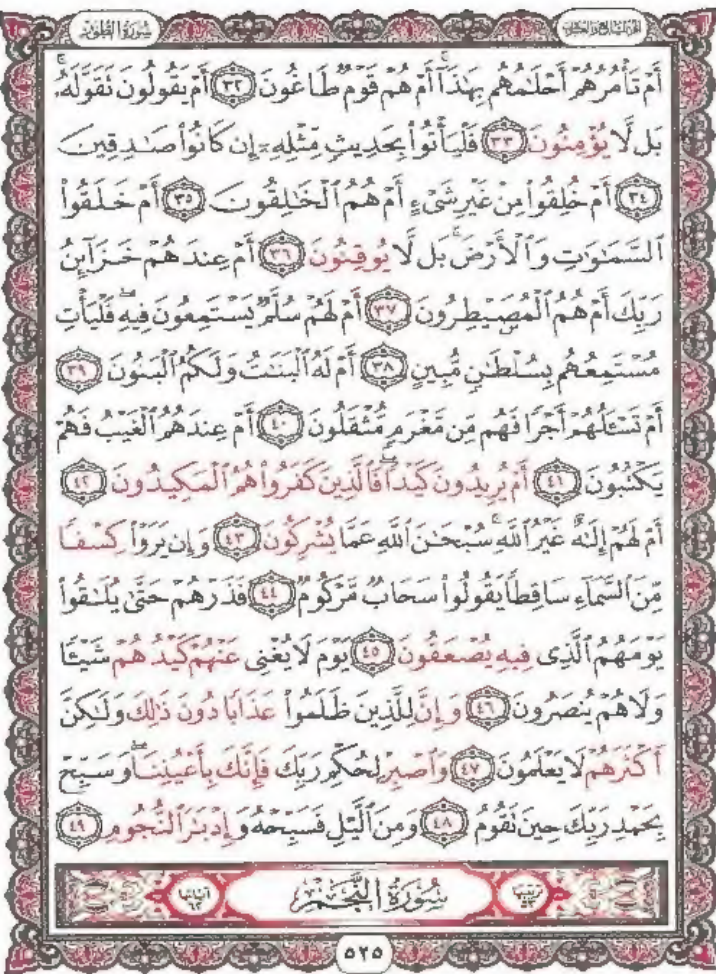 سُورَةُ الطُّورِ
الجزء السابع والعشرون
أَمْ تَأْمُرُهُمْ أَحْلَٰمُهُم بِهَٰذَآ ۚ أَمْ هُمْ قَوْمٌ طَاغُونَ ٣٢ أَمْ يَقُولُونَ تَقَوَّلَهُۥ ۚ
بَل لَّا يُؤْمِنُونَ ٣٣ فَلْيَأْتُوا۟ بِحَدِيثٍ مِّثْلِهِۦٓ إِن كَانُوا۟ صَٰدِقِينَ
٣٤ أَمْ خُلِقُوا۟ مِنْ غَيْرِ شَىْءٍ أَمْ هُمُ ٱلْخَٰلِقُونَ ٣٥ أَمْ خَلَقُوا۟
ٱلسَّمَٰوَٰتِ وَٱلْأَرْضَ ۚ بَل لَّا يُوقِنُونَ ٣٦ أَمْ عِندَهُمْ خَزَآئِنُ
رَبِّكَ أَمْ هُمُ ٱلْمُصَۣيْطِرُونَ ٣٧ أَمْ لَهُمْ سُلَّمٌ يَسْتَمِعُونَ فِيهِ ۖ فَلْيَأْتِ
مُسْتَمِعُهُم بِسُلْطَٰنٍ مُّبِينٍ ٣٨ أَمْ لَهُ ٱلْبَنَٰتُ وَلَكُمُ ٱلْبَنُونَ ٣٩
أَمْ تَسْـَٔلُهُمْ أَجْرًا فَهُم مِّن مَّغْرَمٍ مُّثْقَلُونَ ٤٠ أَمْ عِندَهُمُ ٱلْغَيْبُ فَهُمْ
يَكْتُبُونَ ٤١ أَمْ يُرِيدُونَ كَيْدًا ۖ فَٱلَّذِينَ كَفَرُوا۟ هُمُ ٱلْمَكِيدُونَ ٤٢
أَمْ لَهُمْ إِلَٰهٌ غَيْرُ ٱللَّهِ ۚ سُبْحَٰنَ ٱللَّهِ عَمَّا يُشْرِكُونَ ٤٣ وَإِن يَرَوْا۟ كِسْفًا
مِّنَ ٱلسَّمَآءِ سَاقِطًا يَقُولُوا۟ سَحَابٌ مَّرْكُومٌ ٤٤ فَذَرْهُمْ حَتَّىٰ يُلَٰقُوا۟
يَوْمَهُمُ ٱلَّذِى فِيهِ يُصْعَقُونَ ٤٥ يَوْمَ لَا يُغْنِى عَنْهُمْ كَيْدُهُمْ شَيْـًٔا
وَلَا هُمْ يُنصَرُونَ ٤٦ وَإِنَّ لِلَّذِينَ ظَلَمُوا۟ عَذَابًا دُونَ ذَٰلِكَ وَلَٰكِنَّ
أَكْثَرَهُمْ لَا يَعْلَمُونَ ٤٧ وَٱصْبِرْ لِحُكْمِ رَبِّكَ فَإِنَّكَ بِأَعْيُنِنَا ۖ وَسَبِّحْ
بِحَمْدِ رَبِّكَ حِينَ تَقُومُ ٤٨ وَمِنَ ٱلَّيْلِ فَسَبِّحْهُ وَإِدْبَٰرَ ٱلنُّجُومِ ٤٩
سُورَةُ النَّجْمِ
ترتيبها ٥٣
آياتها ٦٢
٥٢٥